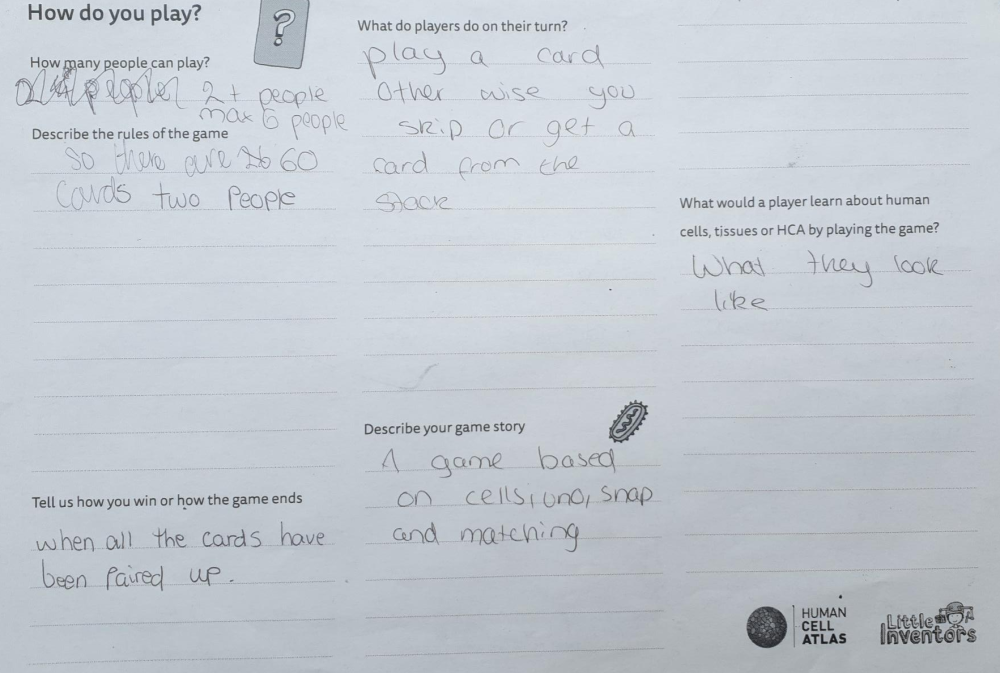 How do you play?
?
How many people can play?
2+ people
max 6 people
Describe the rules of the game
So there are 60
cards two People
Tell us how you win or how the game ends
when all the cards have
been Paired up.
What do players do on their turn?
play a card
Other wise you
skip or get a
card from the
stack
Describe your game story
A game based
on cells, uno, snap
and matching
What would a player learn about human
cells, tissues or HCA by playing the game?
What they look
like
HUMAN
CELL
ATLAS
Little
Inventors